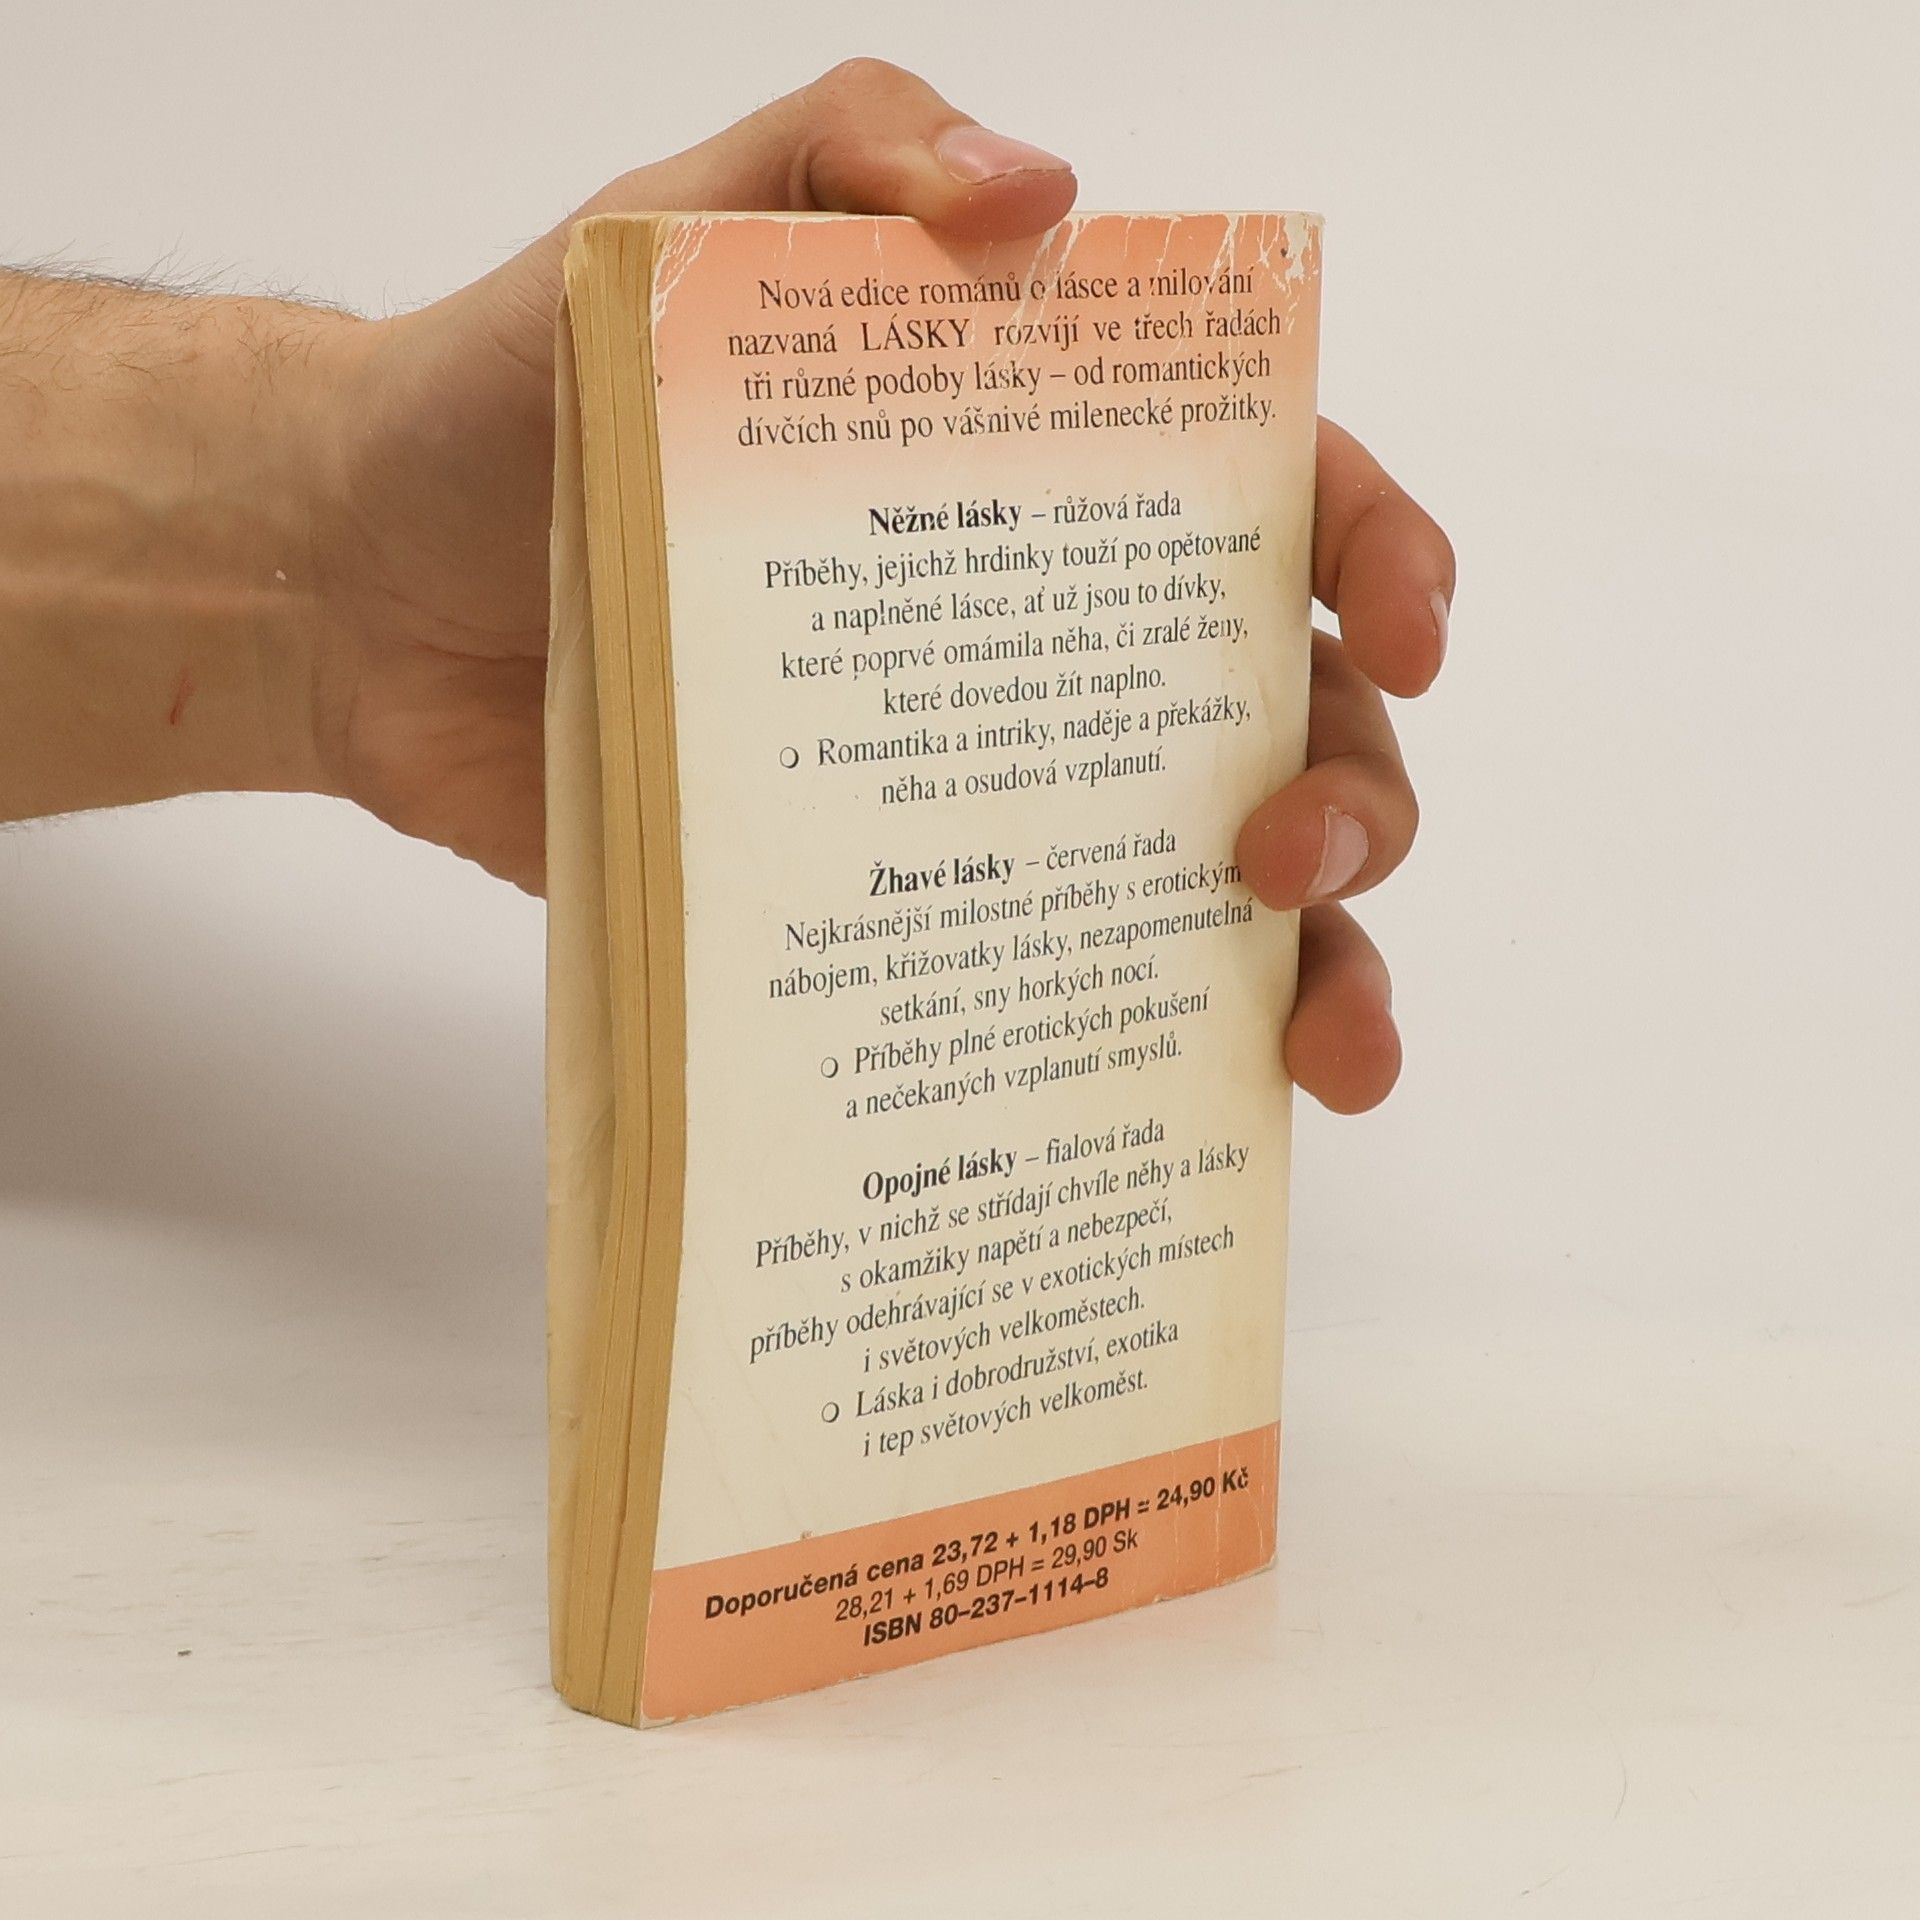 Nová edice románů o lásce a milování
nazvaná LÁSKY rozvíjí ve třech řadách
tři různé podoby lásky – od romantických
dívčích snů po vášnivé milenecké prožitky.
Něžné lásky – růžová řada
Příběhy, jejichž hrdinky touží po opětované
a naplněné lásce, ať už jsou to dívky,
které poprvé omámila něha, či zralé ženy,
které dovedou žít naplno.
❍ Romantika a intriky, naděje a překážky,
něha a osudová vzplanutí.
Žhavé lásky – červená řada
Nejkrásnější milostné příběhy s erotickým
nábojem, křižovatky lásky, nezapomenutelná
setkání, sny horkých nocí.
❍ Příběhy plné erotických pokušení
a nečekaných vzplanutí smyslů.
Opojné lásky – fialová řada
Příběhy, v nichž se střídají chvíle něhy a lásky
s okamžiky napětí a nebezpečí,
příběhy odehrávající se v exotických místech
i světových velkoměstech.
❍ Láska i dobrodružství, exotika
i tep světových velkoměst.
Doporučená cena 23,72 + 1,18 DPH = 24,90 Kč
28,21 + 1,69 DPH = 29,90 Sk
ISBN 80–237–1114–8